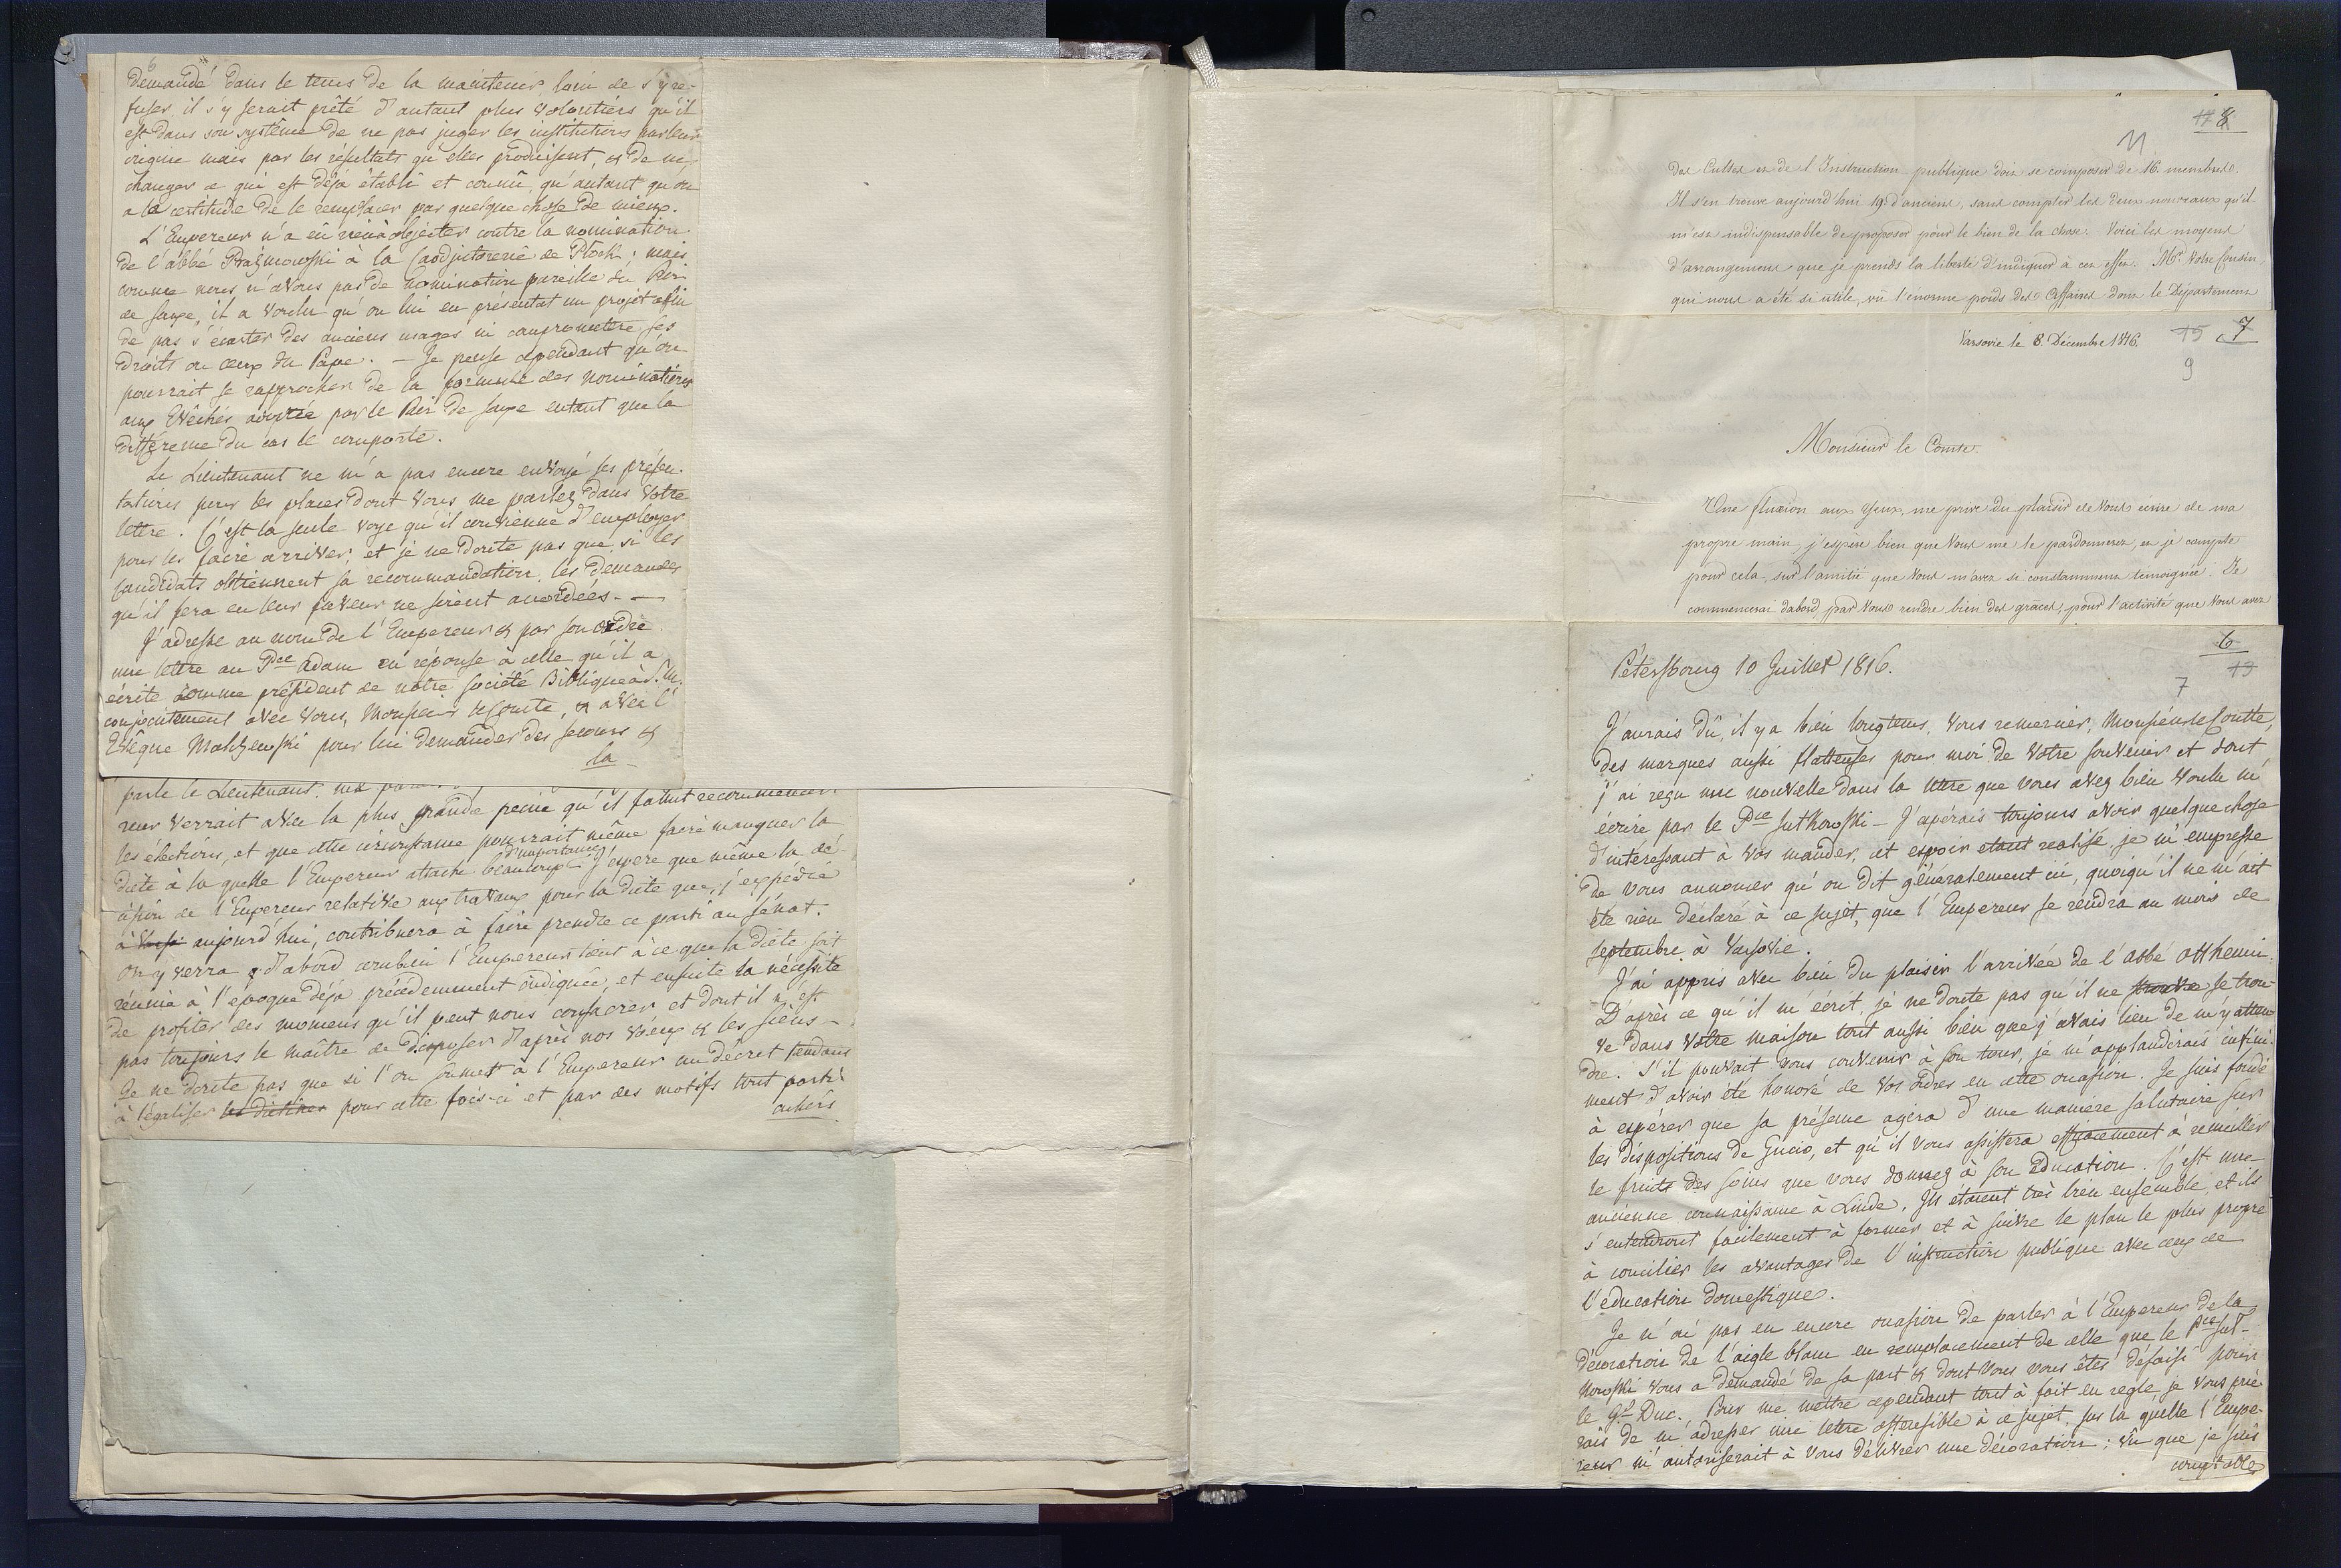 6
demandé dans le tems de la maintenir, loin de s'y re-
fuser, il s'y serait prêté d'autant plus volontiers qu'il
est dans son système de ne pas juger les institutions par leur
origine mais par les résultats qu'elles produisent, & de ne
changer ce qui est déja établi et connû, qu'autant qu'on
a la certitude de le remplacer par quelque chose de mieux.
L'Empereur n'a eû rien à objecter contre la nomination
de l'abbé Prażmowski à la Coadjutorerie de Plock; mais
comme nous n'avons pas de nomination pareille du Roi
de Saxe, il a voulu qu'on lui en présentat un projet afin
de pas s'écarter des anciens usages ni compromettre ses
droits ou ceux du Pape. — Je pense cependant qu'on
pourrait se rapprocher de la formule des nominations
aux Evêchés adoptée par le Roi de Saxe entant que la
différence du cas le comporte.
Le Lieutenant ne m'a pas encore envoyé ses présen-
tations pour les places dont vous me parlez dans votre
lettre. C'est la seule voye qu'il convienne d'employer
pour les faire arriver, et je ne doute pas que, si les
candidats obtiennent sa recommandation, les demandes
qu'il fera en leur faveur ne soient accordées. —
J'adresse au nom de l'Empereur & par son ordre
une lettre au Pce Adam en réponse à celle qu'il a
écrite comme président de notre Société Biblique à S. M.
conjointement avec vous, Monsieur le Comte, & avec l'
Evêque Malczewski pour lui demander des secours &
la
parle le Lieutenant,
reur verrait avec la plus grande peine qu'il fallut recommencer
les élections, et que cette circonstance pourrait même faire manquer la
diète à la quelle l'Empereur attache beaucoup d'importance. J'espere que même la dé-
cision de l'Empereur relative aux travaux pour la diète que j'expédie
à aujourd'hui, contribuera à faire prendre ce parti au Sénat.
On y verra d'abord combien l'Empereur tient à ce que la diète soit
réunie à l'époque déjà précédemment indiquée, et ensuite la nécessité
de profiter des momens qu'il peut nous consacrer et dont il n'est
pas toujours le maître de disposer d'après nos vœux & les siens —
Je ne doute pas que si l'on soumet à l'Empereur un décret tendant
à légaliser les diétines pour cette fois-ci et par des motifs tout parti-
culiers
17 8
11
Des Cultes et de l'Instruction publique doit se composer de 16 membres.
Il s'en trouve aujourd'hui 19 d'anciens, sans compter les deux nouveaux qu'il
m'est indispensable de proposer pour le bien de la chose. Voici les moyens
d'arrangement que je prends la liberté d'indiquer à cet effet. Mr Votre Cousin,
qui nous a été si utile, vû l'énorme poids des Affaires dont le Département
Varsovie le 8. Decembre 1816.
15 7
9
Monsieur le Comte.
Une fluxion aux yeux, me prive du plaisir de Vous écrire de ma
propre main, j'espère bien que Vous me le pardonnerez, et je compte
pour cela, sur l'amitié que Vous m'avez si constamment témoignée. Je
commencerai dabord, par Vous rendre bien des grâces, pour l'activité que Vous avez
6
13
7
Pétersbourg 10 Juillet 1816.
J'aurais dû, il y a bien longtems, vous remercier, Monsieur le Comte,
des marques aussi flatteuses pour moi de votre souvenir et dont
j'ai reçu une nouvelle dans la lettre que vous avez bien voulu m'
écrire par le Pce Sutkowski — J'espérais toujours avoir quelque chose
d'intéressant à vous mander, cet espoir etant realisé, je m'empresse
de vous annoncer qu'on dit généralement ici, quoiqu'il ne m'ait
été rien déclaré à ce sujet, que l'Empereur se rendra au mois de
septembre à Varsovie.
J'ai appris avec bien du plaisir l'arrivée de l'abbé Otthenin.
D'après ce qu'il m'écrit, je ne doute pas qu'il ne trouve se trou-
ve dans votre maison tout aussi bien que j'avais lieu de m'y atten-
dre. S'il pouvait vous convenir à son tour, je m'applaudirais infini-
ment d'avoir été honoré de vos ordres en cette occasion. Je suis fondé
à espérer que sa présence agira d'une manière salutaire sur
les dispositions de Gucio, et qu'il vous assistera efficacement à recueillir
le fruit des soins que vous donnez à son éducation. C'est une
ancienne connaissance à Linde. Ils étaient très bien ensemble, et ils
s'entendront facilement à former et à suivre le plan le plus propre
à concilier les avantages de l'instruction publique avec ceux de
l'education domestique.
Je n'ai pas eu encore occasion de parler à l'Empereur de la
décoration de l'aigle blanc en remplacement de celle que le Pce Sut-
kowski vous a demandé de sa part & dont vous vous êtes désaisi pour
le Gd Duc. Pour me mettre cependant tout à fait en regle, je vous prie-
rais de m'adresser une lettre ostensible à ce sujet, sur la quelle l'Empe-
reur m'autoriserait à vous délivrer une décoration: vû que je suis
comptable